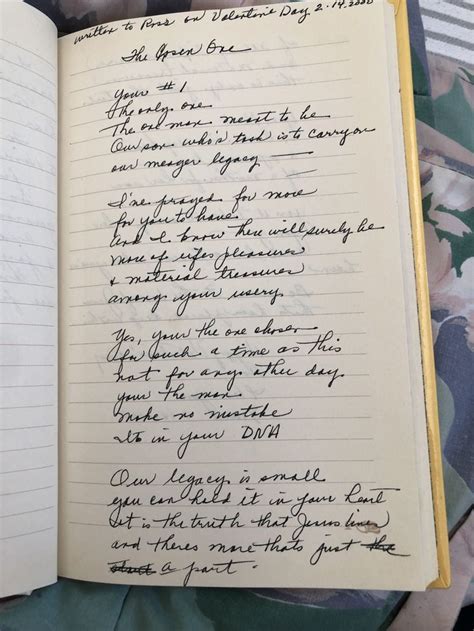 written to Ross on Valentine Day 2.14.2020
The Chosen One
Your #1
The only one
The one man meant to be
Our son who's task is to carry on
our meager legacy
I've prayed for more
for you to have
and I know there will surely be
more of life's pleasures
& material treasures
among your usery
Yes, your the one chosen
for such a time as this
not for any other day
your the man
make no mistake
Its in your DNA
Our legacy is small
you can hold it in your heart
it is the truth that Jesus lives
and theres more thats just the
start a part.